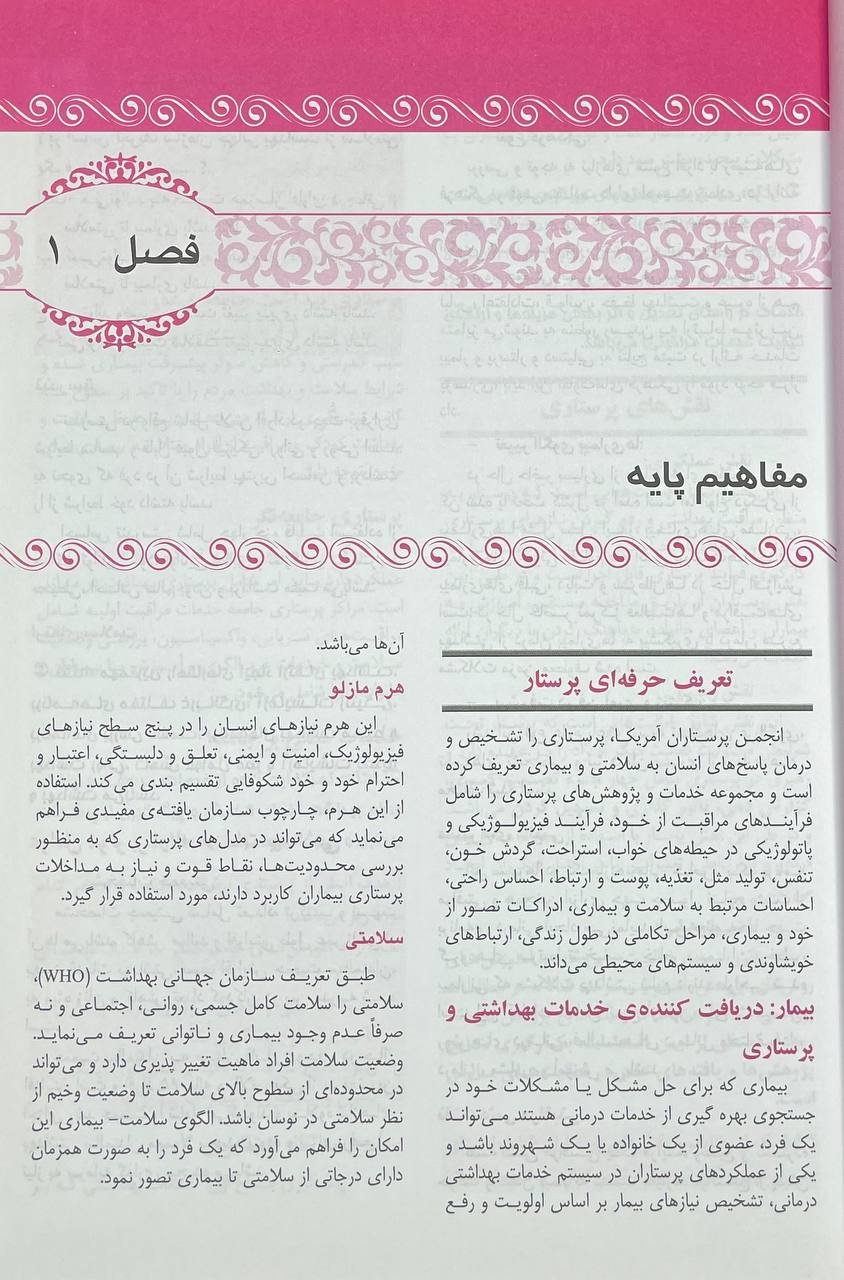 فصل ۱
مفاهیم پایه
تعریف حرفه‌ای پرستار
انجمن پرستاران آمریکا، پرستاری را تشخیص و
درمان پاسخ‌های انسان به سلامتی و بیماری تعریف کرده
است و مجموعه خدمات و پژوهش‌های پرستاری را شامل
فرآیندهای مراقبت از خود، فرآیند فیزیولوژیکی و
پاتولوژیکی در حیطه‌های خواب، استراحت، گردش خون،
تنفس، تولید مثل، تغذیه، پوست و ارتباط، احساس راحتی،
احساسات مرتبط به سلامت و بیماری، ادراکات تصور از
خود و بیماری، مراحل تکاملی در طول زندگی، ارتباط‌های
خویشاوندی و سیستم‌های محیطی می‌داند.
بیمار: دریافت کننده‌ی خدمات بهداشتی و
پرستاری
بیماری که برای حل مشکل یا مشکلات خود در
جستجوی بهره گیری از خدمات درمانی هستند می‌تواند
یک فرد، عضوی از یک خانواده یا یک شهروند باشد و
یکی از عملکردهای پرستاران در سیستم خدمات بهداشتی
درمانی، تشخیص نیازهای بیمار بر اساس اولویت و رفع
آن‌ها می‌باشد.
هرم مازلو
این هرم نیازهای انسان را در پنج سطح نیازهای
فیزیولوژیک، امنیت و ایمنی، تعلق و دلبستگی، اعتبار و
احترام خود و خود شکوفایی تقسیم بندی می‌کند. استفاده
از این هرم، چارچوب سازمان یافته‌ی مفیدی فراهم
می‌نماید که می‌تواند در مدل‌های پرستاری که به منظور
بررسی محدودیت‌ها، نقاط قوت و نیاز به مداخلات
پرستاری بیماران کاربرد دارند، مورد استفاده قرار گیرد.
سلامتی
طبق تعریف سازمان جهانی بهداشت (WHO)،
سلامتی را سلامت کامل جسمی، روانی، اجتماعی و نه
صرفاً عدم وجود بیماری و ناتوانی تعریف می‌نماید.
وضعیت سلامت افراد ماهیت تغییر پذیری دارد و می‌تواند
در محدوده‌ای از سطوح بالای سلامت تا وضعیت وخیم از
نظر سلامتی در نوسان باشد. الگوی سلامت- بیماری این
امکان را فراهم می‌آورد که یک فرد را به صورت همزمان
دارای درجاتی از سلامتی تا بیماری تصور نمود.